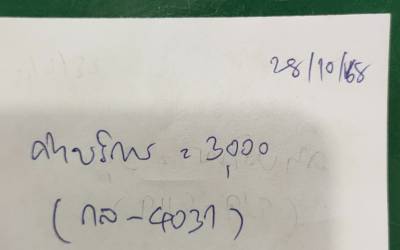 28/10/68
ค่าบริการ = 3,000
(กส-4037)